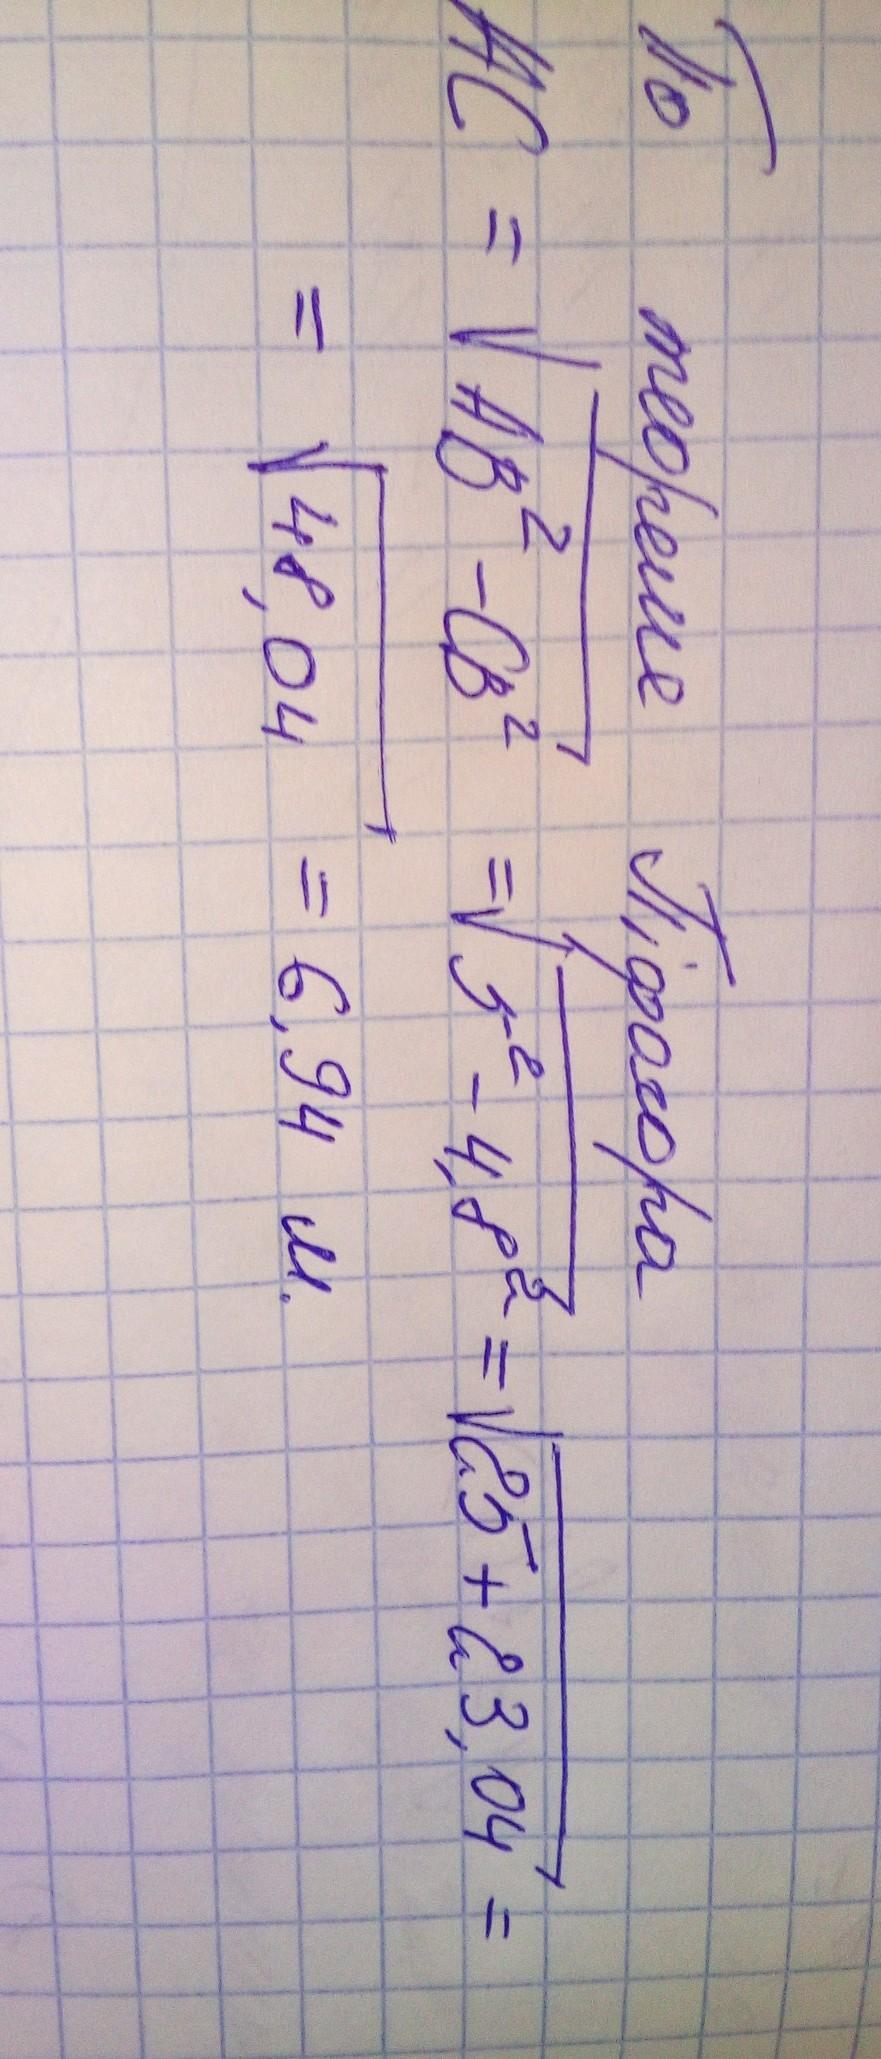 По теореме Піфагора
AC = √AB² - CB² = √5² - 4,8² = √25 + 23,04 =
= √48,04 = 6,94 м.